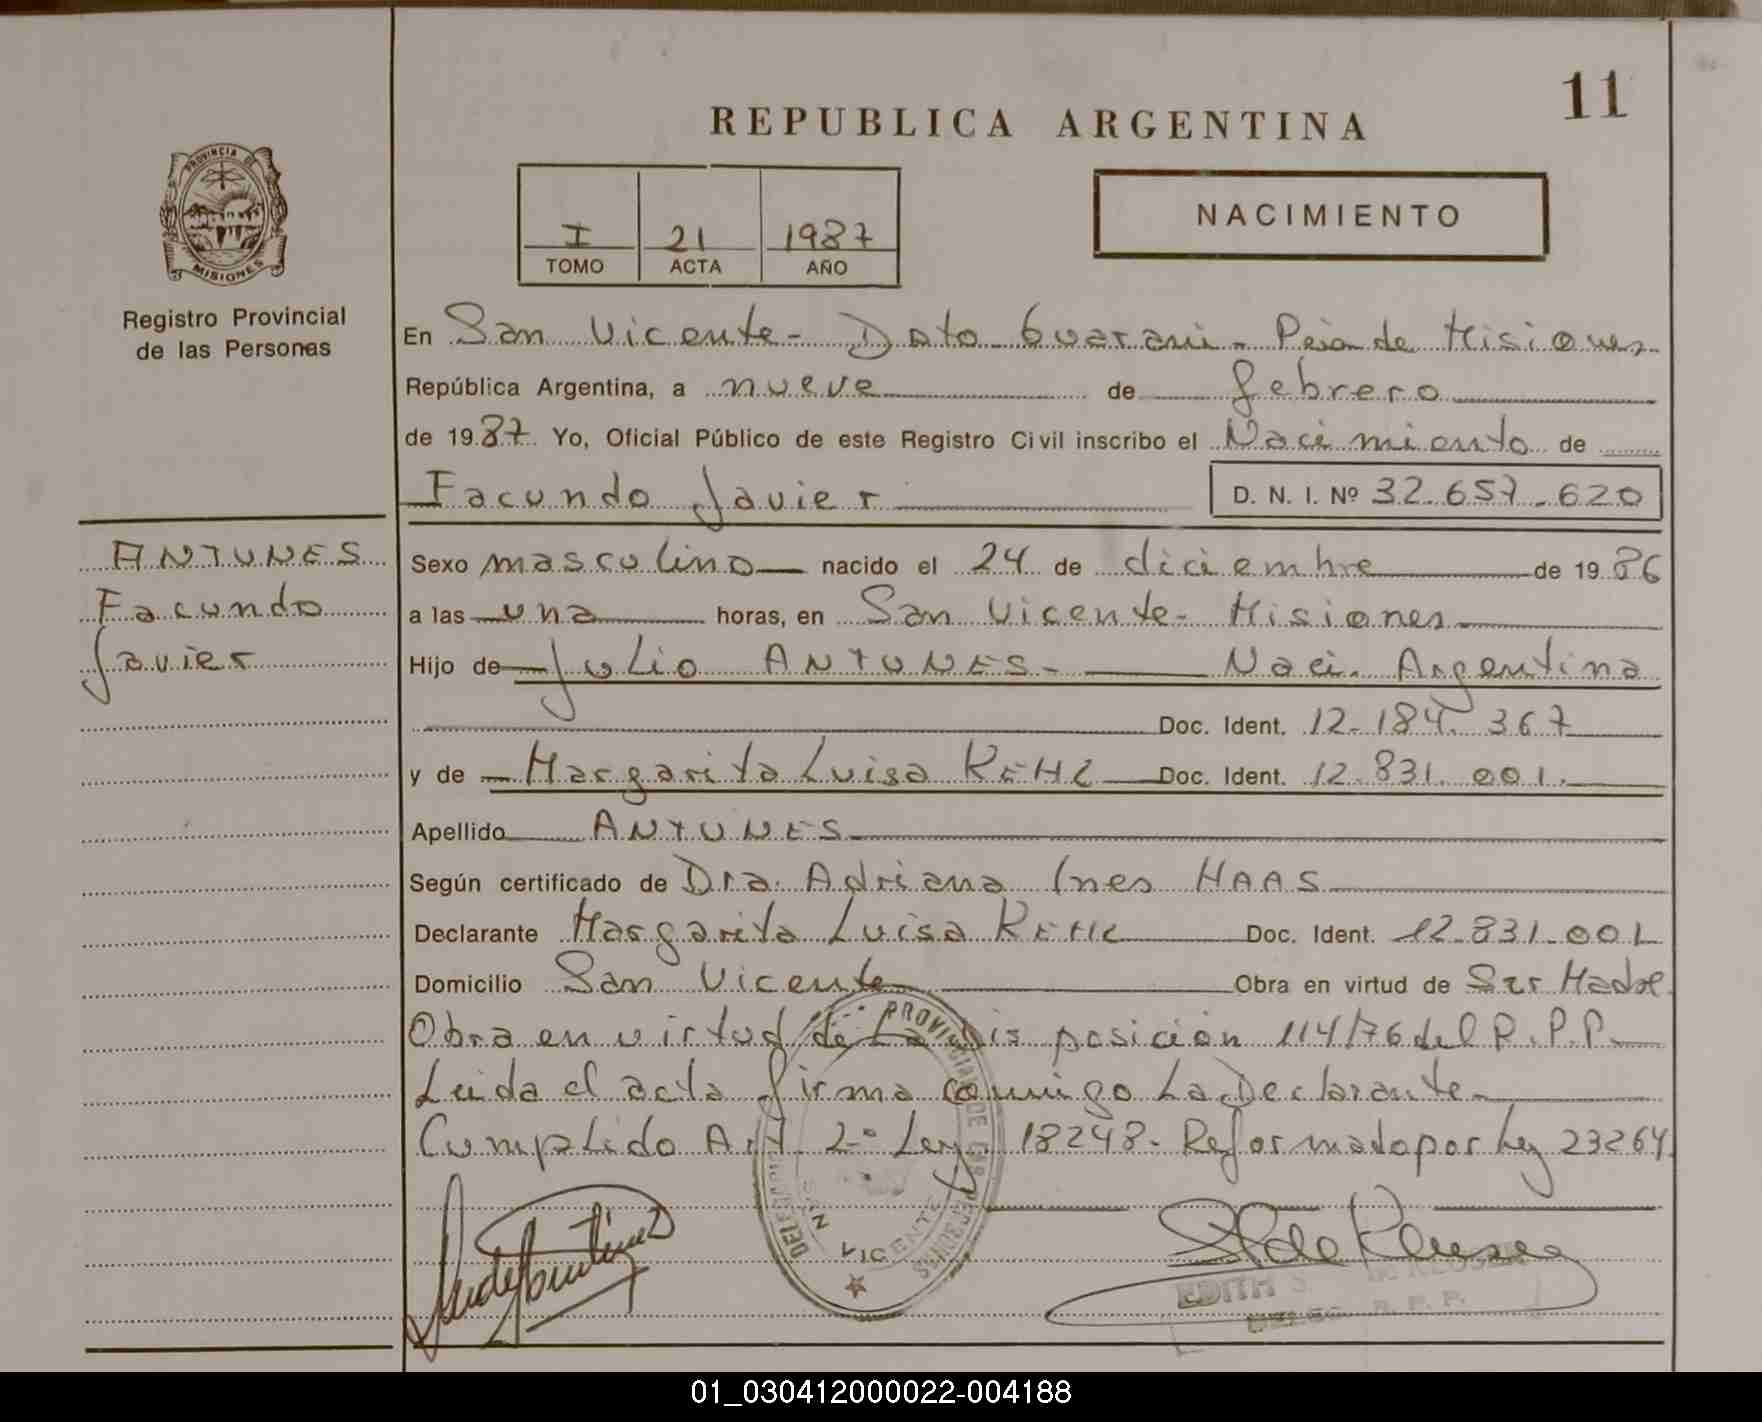 11
REPUBLICA ARGENTINA
PROVINCIA DE
MISIONES
Registro Provincial
de las Personas
I 21 1987
TOMO ACTA AÑO
NACIMIENTO
En San Vicente - Dpto Guarani - Pcia de Misiones
República Argentina, a nueve de febrero
de 1987 Yo, Oficial Público de este Registro Civil inscribo el Nacimiento de
Facundo Javier D. N. I. Nº 32.657.620
ANTUNES
Facundo
Javier
Sexo masculino nacido el 24 de diciembre de 1986
a las una horas, en San Vicente - Misiones
Hijo de Julio ANTUNES - Naci. Argentina
Doc. Ident. 12.184.367
y de Margarita Luisa KEHL Doc. Ident. 12.831.001.
Apellido ANTUNES
Según certificado de Dra. Adriana Ines HAAS
Declarante Margarita Luisa KEHL Doc. Ident. 12.831.001
Domicilio San Vicente Obra en virtud de Ser Madre
Obra en virtud de La Disposición 114/76 del R.P.P.
Leida el acta firma conmigo La Declarante
Cumplido Art. 2º Ley 18248 - Reformado por Ley 23264
SAN VICENTE
EDITH S. DE KLUSER
DELEG. R. P. P.
01_030412000022-004188